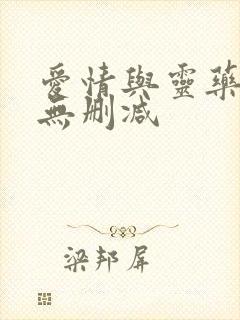 愛情與靈藥
無删減
梁邦屏